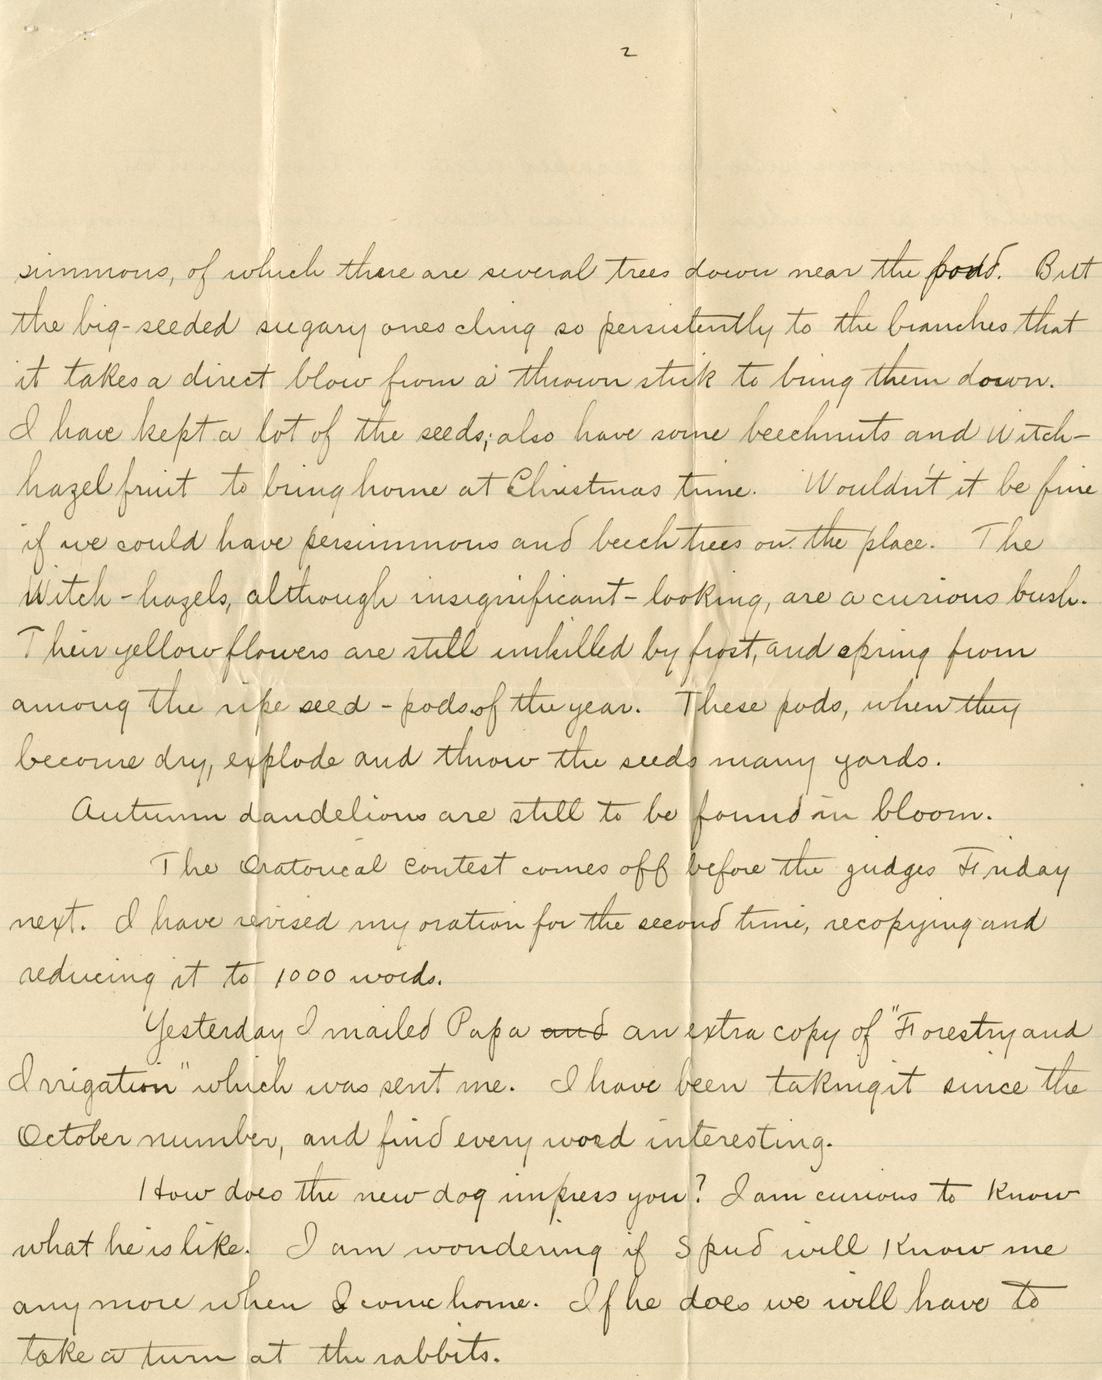 2
simmons, of which there are several trees down near the pond. But
the big-seeded sugary ones cling so persistently to the branches that
it takes a direct blow from a thrown stick to bring them down.
I have kept a lot of the seeds; also have some beechnuts and Witch-
hazel fruit to bring home at Christmas time. Wouldn't it be fine
if we could have persimmons and beech trees on the place. The
Witch-hazels, although insignificant-looking, are a curious bush.
Their yellow flowers are still unkilled by frost, and spring from
among the ripe seed-pods of the year. These pods, when they
become dry, explode and throw the seeds many yards.
Autumn dandelions are still to be found in bloom.
The Oratorical contest comes off before the judges Friday
next. I have revised my oration for the second time, recopying and
reducing it to 1000 words.
Yesterday I mailed Papa and an extra copy of "Forestry and
Irrigation" which was sent me. I have been taking it since the
October number, and find every word interesting.
How does the new dog impress you? I am curious to know
what he is like. I am wondering if Spud will know me
any more when I come home. If he does we will have to
take a turn at the rabbits.